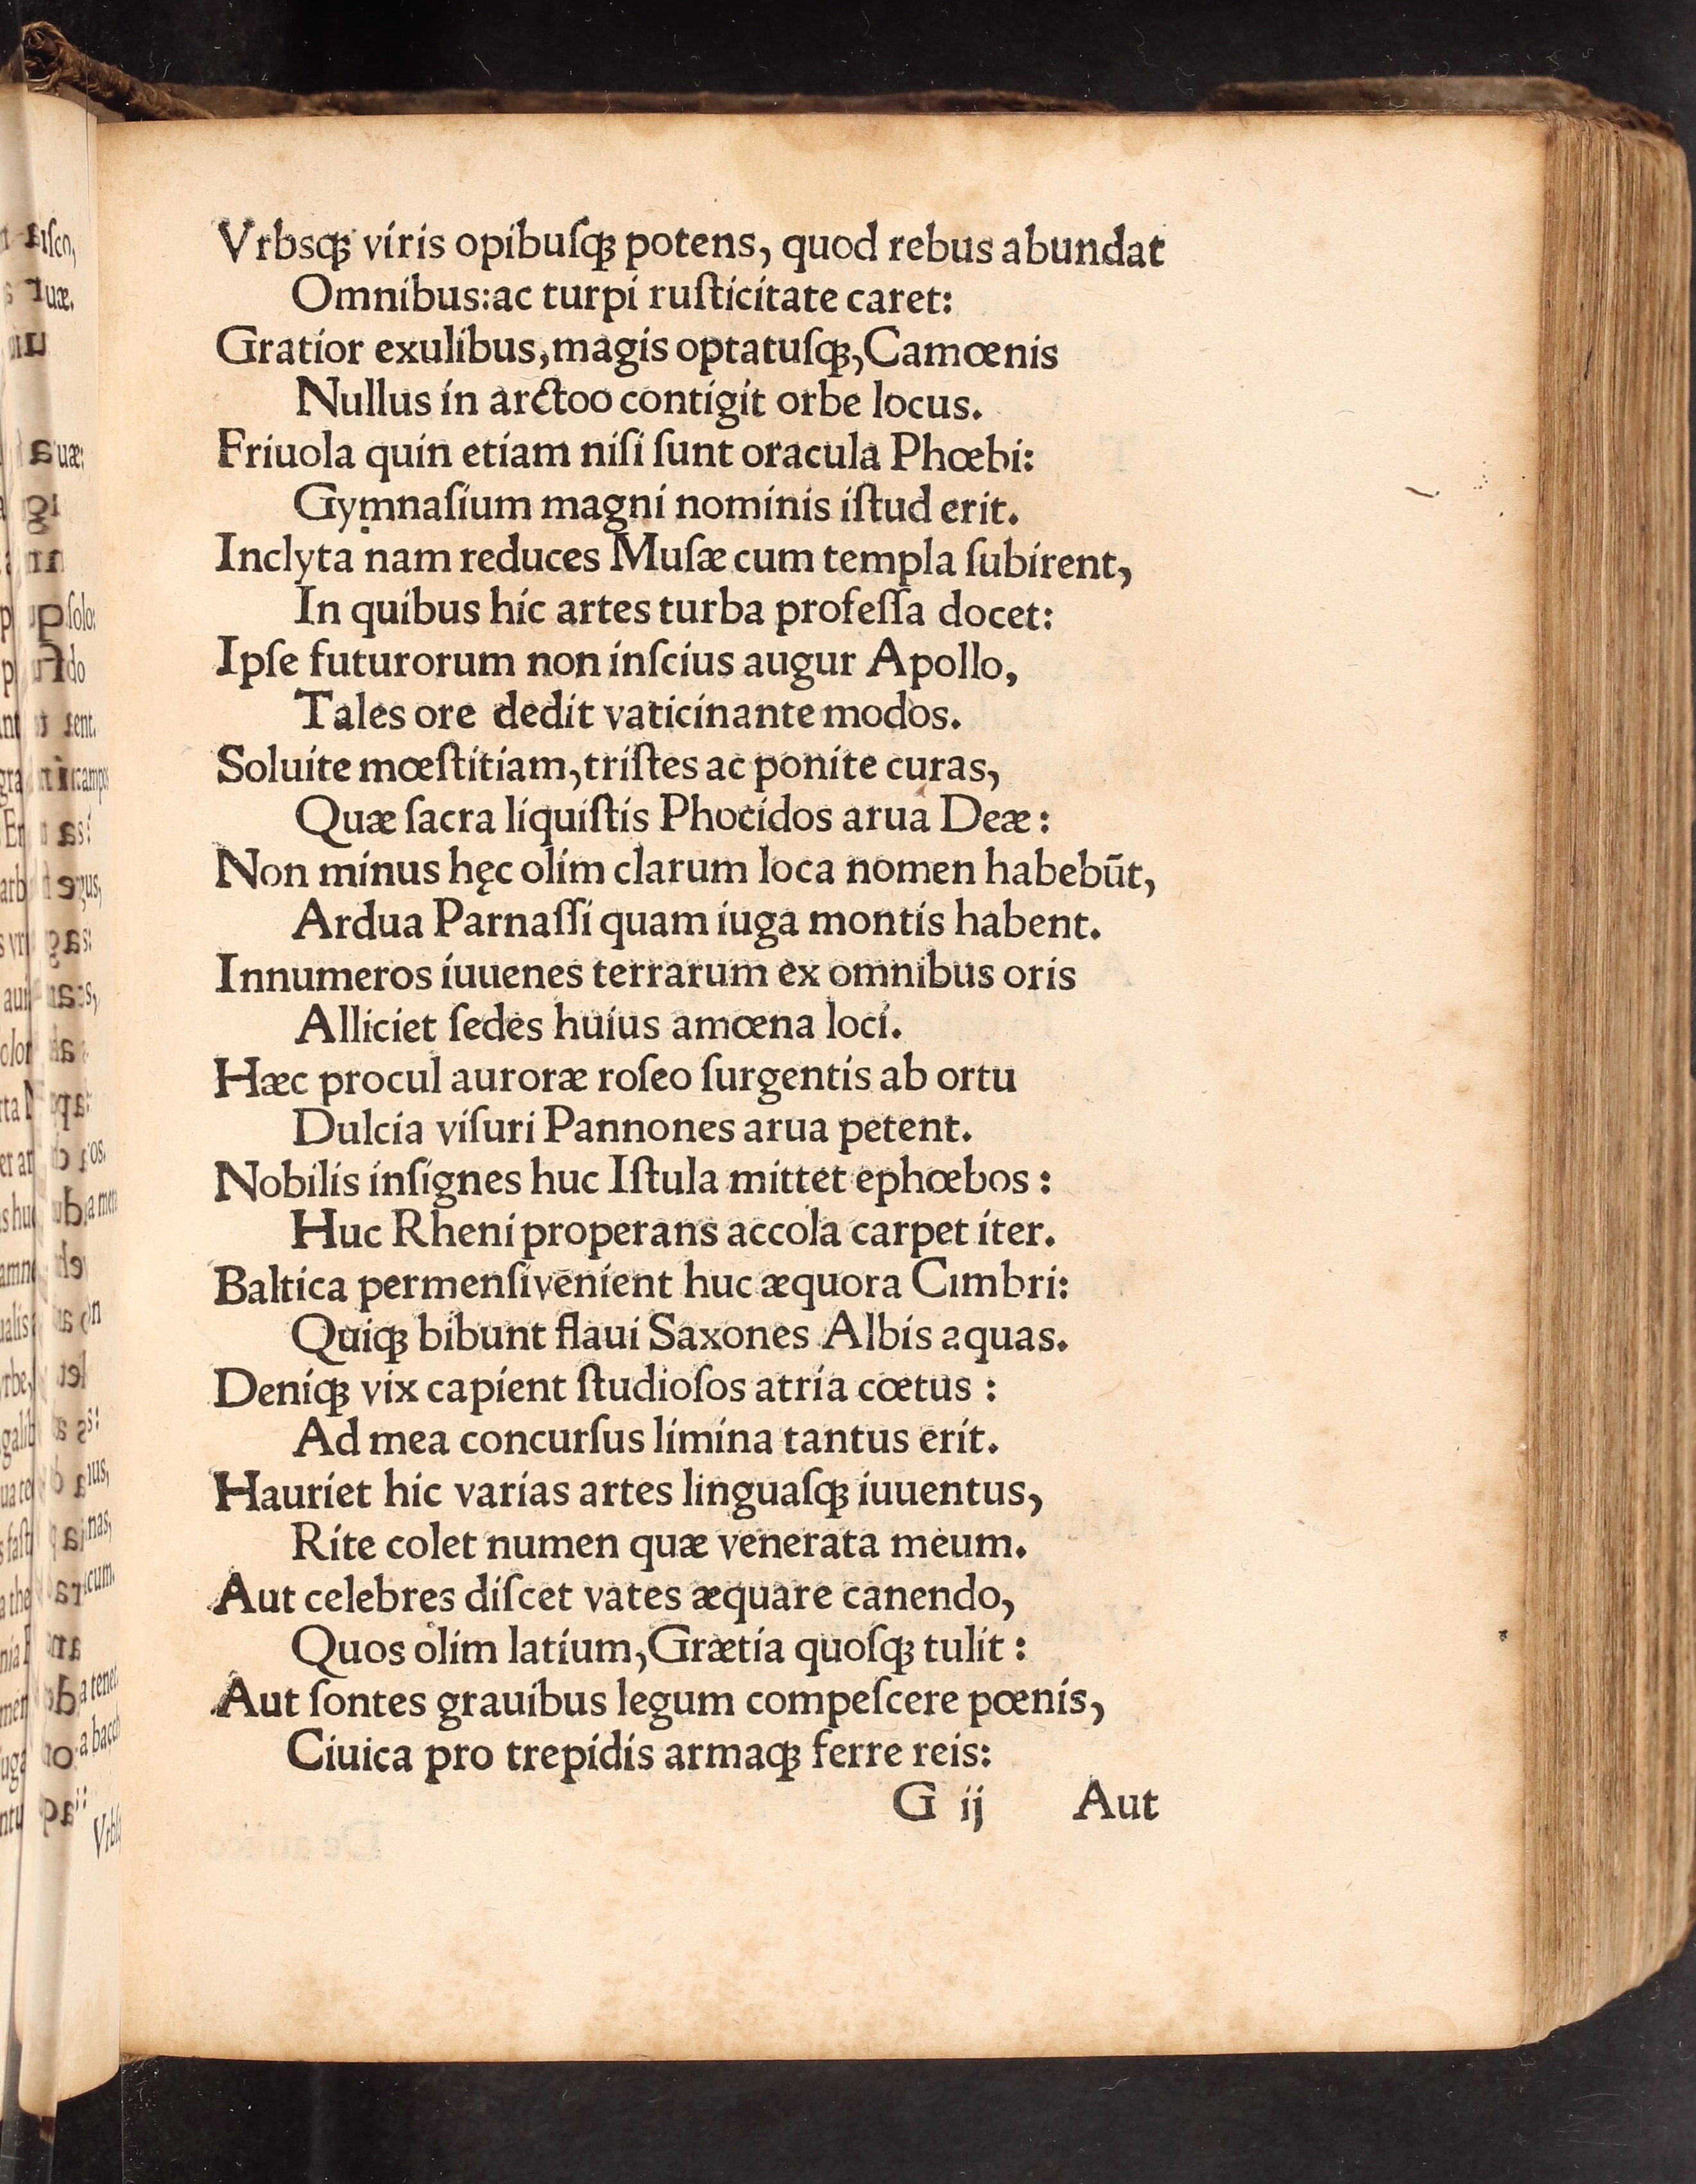 Vrbsqꝫ viris opibuſqꝫ potens, quod rebus abundat
Omnibus:ac turpi ruſticitate caret:
Gratior exulibus,magis optatuſqꝫ,Camœnis
Nullus in arctoo contigit orbe locus.
Friuola quin etiam niſi ſunt oracula Phœbi:
Gymnaſium magni nominis iſtud erit.
Inclyta nam reduces Muſæ cum templa ſubirent,
In quibus hic artes turba profeſſa docet:
Ipſe futurorum non inſcius augur Apollo,
Tales ore dedit vaticinante modos.
Soluite mœſtitiam,triſtes ac ponite curas,
Quæ ſacra liquiſtis Phocidos arua Deæ:
Non minus hęc olim clarum loca nomen habebūt,
Ardua Parnaſſi quam iuga montis habent.
Innumeros iuuenes terrarum ex omnibus oris
Alliciet ſedes huius amœna loci.
Hæc procul auroræ roſeo ſurgentis ab ortu
Dulcia viſuri Pannones arua petent.
Nobilis inſignes huc Iſtula mittet ephœbos:
Huc Rheni properans accola carpet iter.
Baltica permenſi venient huc æquora Cimbri:
Quiqꝫ bibunt flaui Saxones Albis aquas.
Deniqꝫ vix capient ſtudioſos atria cœtus:
Ad mea concurſus limina tantus erit.
Hauriet hic varias artes linguaſqꝫ iuuentus,
Rite colet numen quæ venerata meum.
Aut celebres diſcet vates æquare canendo,
Quos olim latium,Grætia quoſqꝫ tulit:
Aut ſontes grauibus legum compeſcere pœnis,
Ciuica pro trepidis armaqꝫ ferre reis:
G ij Aut